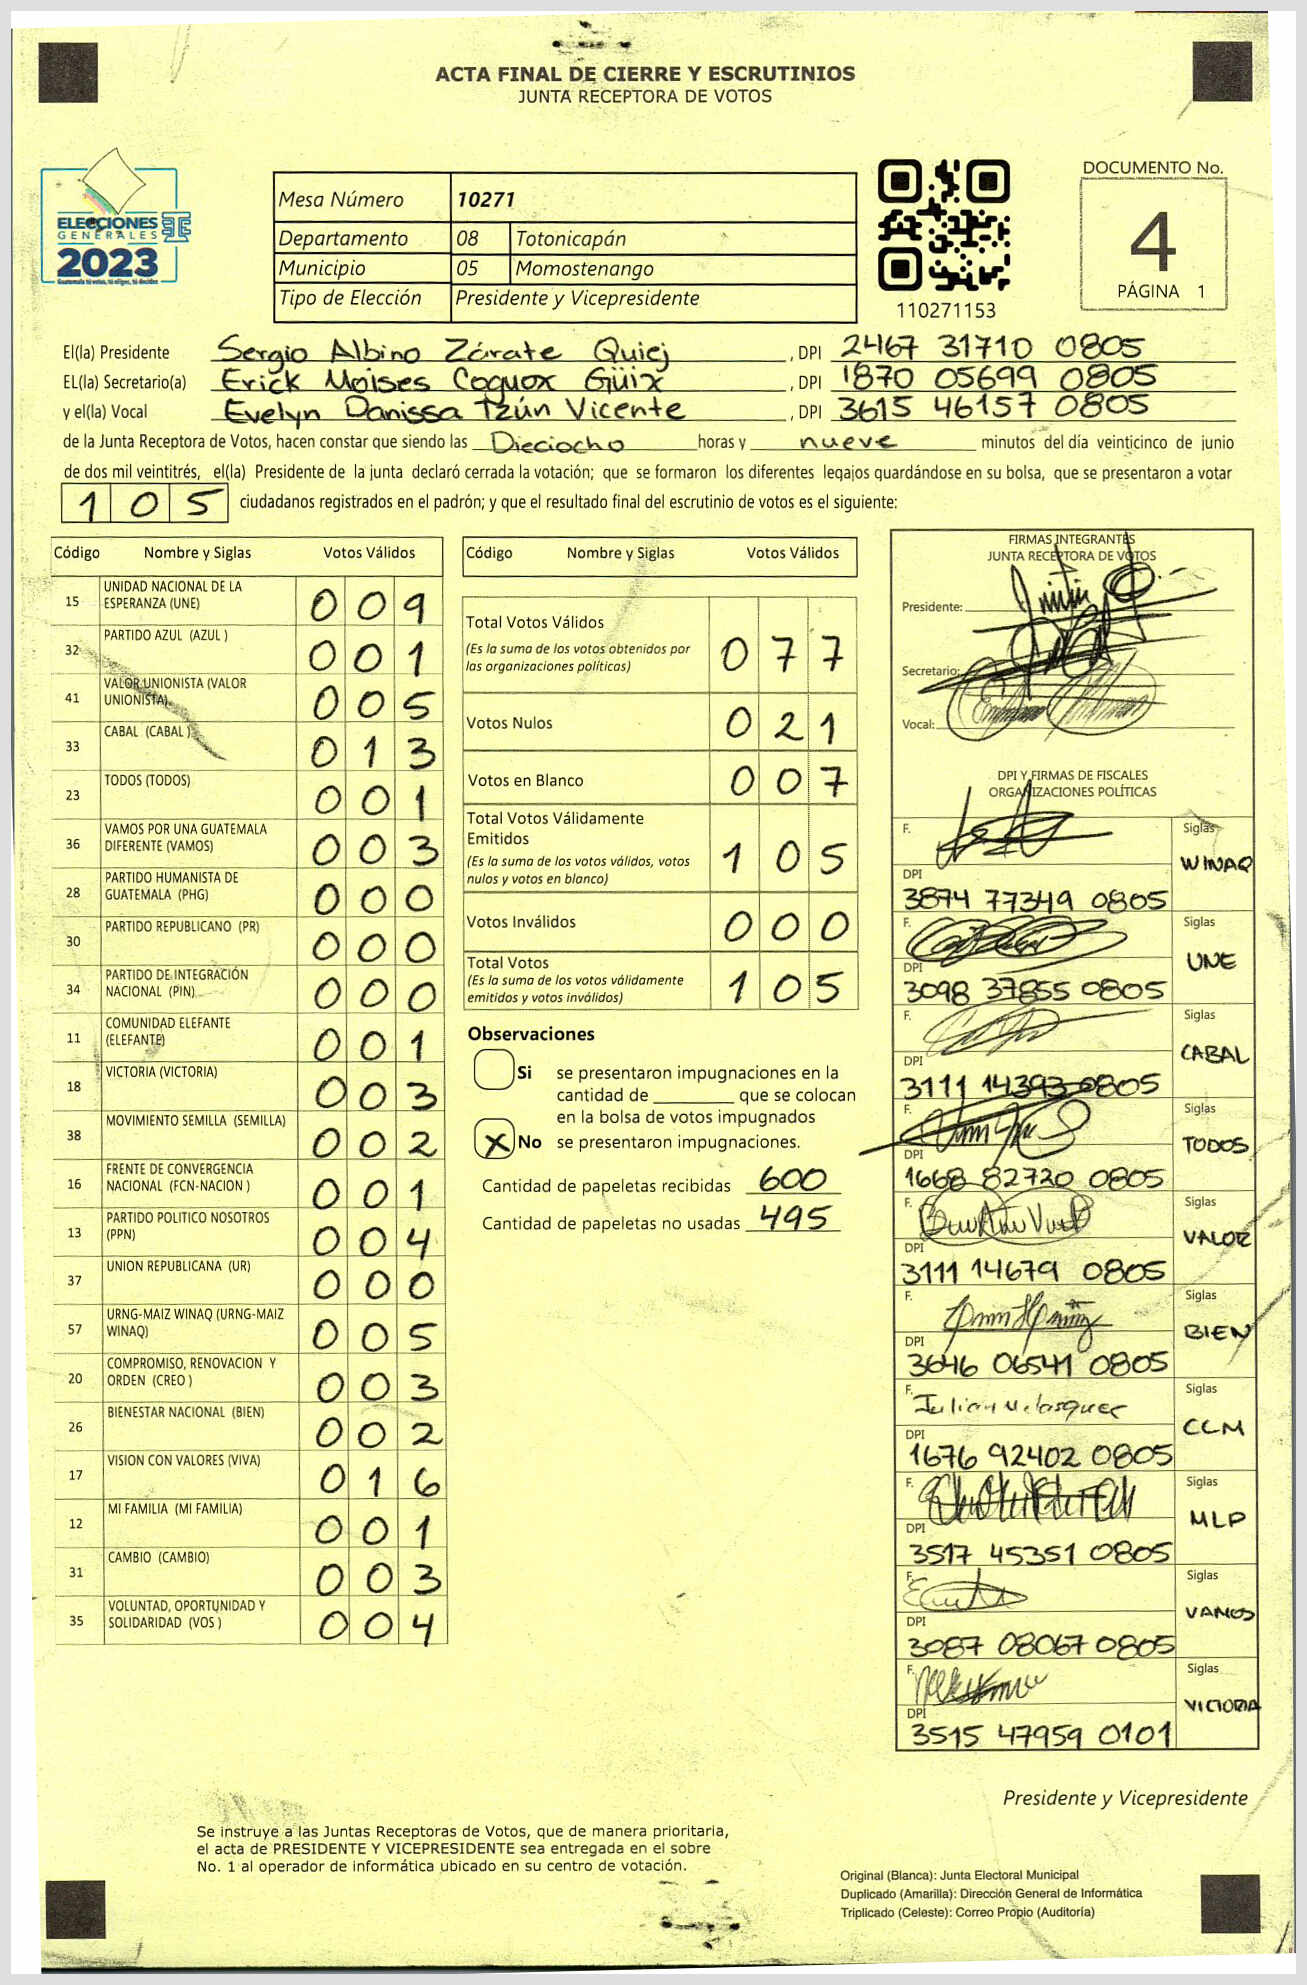 ACTA FINAL DE CIERRE Y ESCRUTINIOS
JUNTA RECEPTORA DE VOTOS
ELECCIONES
GENERALES
2023
Guatemala tú votas, tú eliges, tú decides
Mesa Número 10271
Departamento 08 Totonicapán
Municipio 05 Momostenango
Tipo de Elección Presidente y Vicepresidente
110271153
DOCUMENTO No.
4
PÁGINA 1
El(la) Presidente Sergio Albino Zárate Quiej , DPI 2467 31710 0805
EL(la) Secretario(a) Erick Moises Coquox Güix , DPI 1870 05699 0805
y el(la) Vocal Evelyn Danissa Tzún Vicente , DPI 3615 46157 0805
de la Junta Receptora de Votos, hacen constar que siendo las Dieciocho horas y nueve minutos del día veinticinco de junio
de dos mil veintitrés, el(la) Presidente de la junta declaró cerrada la votación; que se formaron los diferentes legajos guardándose en su bolsa, que se presentaron a votar
105 ciudadanos registrados en el padrón; y que el resultado final del escrutinio de votos es el siguiente:
Código Nombre y Siglas Votos Válidos
15 UNIDAD NACIONAL DE LA ESPERANZA (UNE) 009
32 PARTIDO AZUL (AZUL ) 001
41 VALOR UNIONISTA (VALOR UNIONISTA) 005
33 CABAL (CABAL ) 013
23 TODOS (TODOS) 001
36 VAMOS POR UNA GUATEMALA DIFERENTE (VAMOS) 003
28 PARTIDO HUMANISTA DE GUATEMALA (PHG) 000
30 PARTIDO REPUBLICANO (PR) 000
34 PARTIDO DE INTEGRACIÓN NACIONAL (PIN) 000
11 COMUNIDAD ELEFANTE (ELEFANTE) 001
18 VICTORIA (VICTORIA) 003
38 MOVIMIENTO SEMILLA (SEMILLA) 002
16 FRENTE DE CONVERGENCIA NACIONAL (FCN-NACION ) 001
13 PARTIDO POLITICO NOSOTROS (PPN) 004
37 UNION REPUBLICANA (UR) 000
57 URNG-MAIZ WINAQ (URNG-MAIZ WINAQ) 005
20 COMPROMISO, RENOVACION Y ORDEN (CREO ) 003
26 BIENESTAR NACIONAL (BIEN) 002
17 VISION CON VALORES (VIVA) 016
12 MI FAMILIA (MI FAMILIA) 001
31 CAMBIO (CAMBIO) 003
35 VOLUNTAD, OPORTUNIDAD Y SOLIDARIDAD (VOS ) 004
Código Nombre y Siglas Votos Válidos
Total Votos Válidos 077
(Es la suma de los votos obtenidos por
las organizaciones políticas)
Votos Nulos 021
Votos en Blanco 007
Total Votos Válidamente
Emitidos 105
(Es la suma de los votos válidos, votos
nulos y votos en blanco)
Votos Inválidos 000
Total Votos 105
(Es la suma de los votos válidamente
emitidos y votos inválidos)
Observaciones
Si se presentaron impugnaciones en la
cantidad de ________ que se colocan
en la bolsa de votos impugnados
X No se presentaron impugnaciones.
Cantidad de papeletas recibidas 600
Cantidad de papeletas no usadas 495
FIRMAS INTEGRANTES
JUNTA RECEPTORA DE VOTOS
Presidente:
Secretario:
Vocal:
DPI Y FIRMAS DE FISCALES
ORGANIZACIONES POLÍTICAS
F. Siglas
WINAQ
DPI
3874 77349 0805
F. Siglas
UNE
DPI
3098 37855 0805
F. Siglas
CABAL
DPI
3111 14393 0805
F. Siglas
TODOS
DPI
1668 82720 0805
F. Siglas
VALOR
DPI
3111 14679 0805
F. Siglas
BIEN
DPI
3646 06541 0805
F. Julian Velasquez Siglas
CCM
DPI
1676 92402 0805
F. Siglas
MLP
DPI
3517 45351 0805
F. Siglas
VAMOS
DPI
3087 08067 0805
F. Siglas
VICTORIA
DPI
3515 47959 0101
Presidente y Vicepresidente
Se instruye a las Juntas Receptoras de Votos, que de manera prioritaria,
el acta de PRESIDENTE Y VICEPRESIDENTE sea entregada en el sobre
No. 1 al operador de informática ubicado en su centro de votación.
Original (Blanca): Junta Electoral Municipal
Duplicado (Amarilla): Dirección General de Informática
Triplicado (Celeste): Correo Propio (Auditoría)